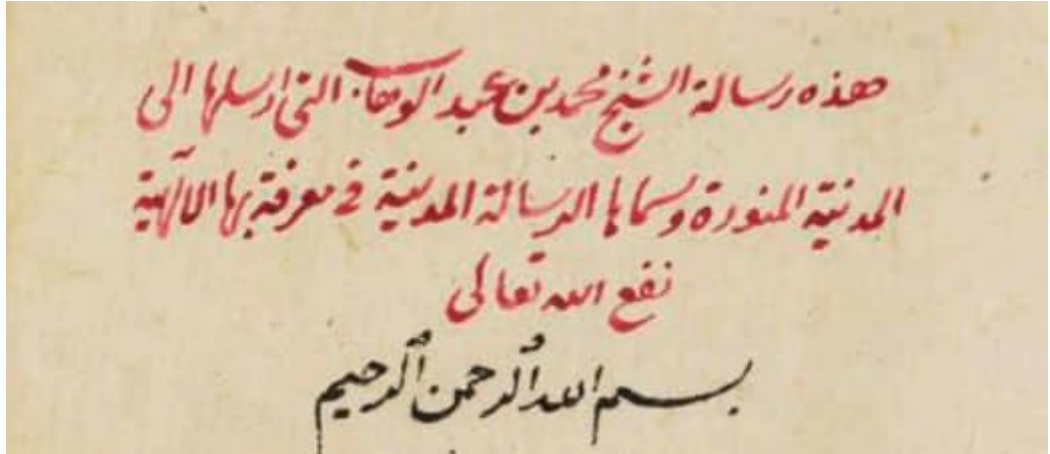 هذه رسالة الشيخ محمد بن عبد الوهاب التي ارسلها الى
المدينة المنورة وسماها الرسالة المدنية في معرفة بها الالهية
نفع الله تعالى
بسم الله الرحمن الرحيم